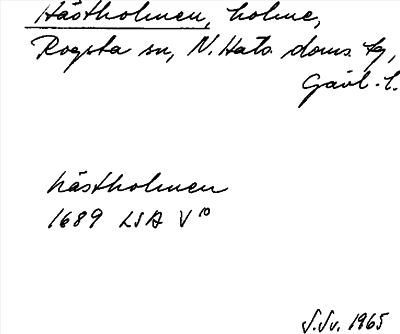 Hästholmen, holme,
Rogsta sn, N. Häls. doms. tg,
Gävl. l.
hästholmen
1689 LSA V 10
S.Sv. 1965